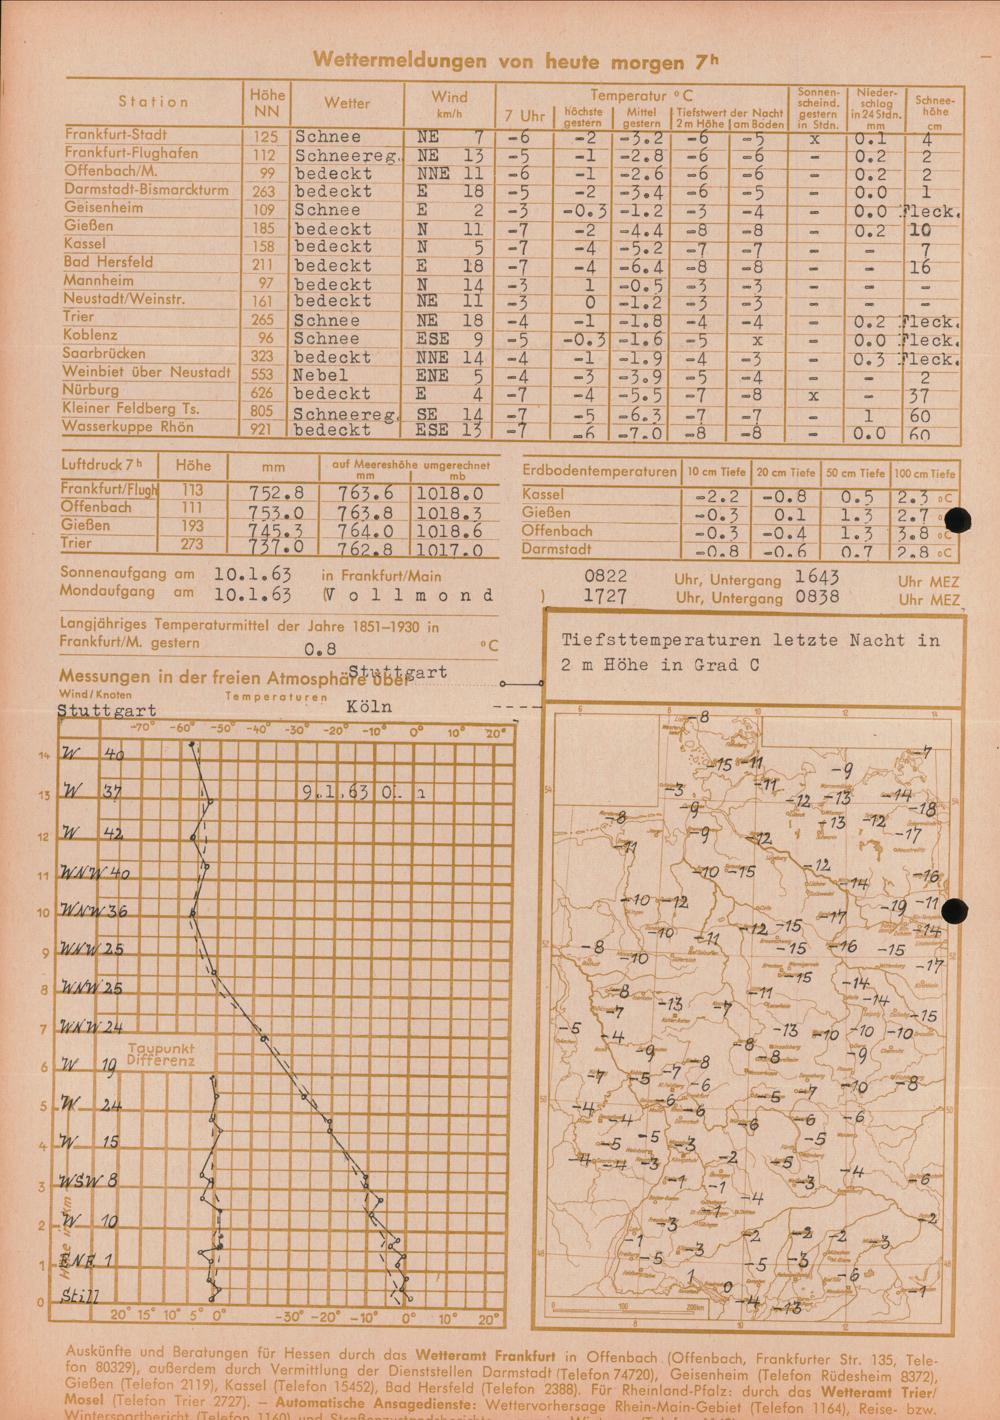 Wettermeldungen von heute morgen 7h
Station Höhe NN Wetter Wind km/h Temperatur °C Sonnen-scheind. gestern in Stdn. Nieder-schlag in 24 Stdn. mm Schnee-höhe cm
7 Uhr höchste gestern Mittel gestern Tiefstwert der Nacht 2 m Höhe am Boden
Frankfurt-Stadt 125 Schnee NE 7 -6 -2 -3.2 -6 -5 x 0.1 4
Frankfurt-Flughafen 112 Schneereg. NE 13 -5 -1 -2.8 -6 -6 - 0.2 2
Offenbach/M. 99 bedeckt NNE 11 -6 -1 -2.6 -6 -6 - 0.2 2
Darmstadt-Bismarckturm 263 bedeckt E 18 -5 -2 -3.4 -6 -5 - 0.0 1
Geisenheim 109 Schnee E 2 -3 -0.3 -1.2 -3 -4 - 0.0 Fleck.
Gießen 185 bedeckt N 11 -7 -2 -4.4 -8 -8 - 0.2 10
Kassel 158 bedeckt N 5 -7 -4 -5.2 -7 -7 - - 7
Bad Hersfeld 211 bedeckt E 18 -7 -4 -6.4 -8 -8 - - 16
Mannheim 97 bedeckt N 14 -3 1 -0.5 -3 -3 - - -
Neustadt/Weinstr. 161 bedeckt NE 11 -3 0 -1.2 -3 -3 - - -
Trier 265 Schnee NE 18 -4 -1 -1.8 -4 -4 - 0.2 Fleck.
Koblenz 96 Schnee ESE 9 -5 -0.3 -1.6 -5 x - 0.0 Fleck.
Saarbrücken 323 bedeckt NNE 14 -4 -1 -1.9 -4 -3 - 0.3 Fleck.
Weinbiet über Neustadt 553 Nebel ENE 5 -4 -3 -3.9 -5 -4 - - 2
Nürburg 626 bedeckt E 4 -7 -4 -5.5 -7 -8 x - 37
Kleiner Feldberg Ts. 805 Schneereg. SE 14 -7 -5 -6.3 -7 -7 - 1 60
Wasserkuppe Rhön 921 bedeckt ESE 13 -7 -6 -7.0 -8 -8 - 0.0 60
Luftdruck 7h Höhe mm auf Meereshöhe umgerechnet mm mb
Frankfurt/Flugh 113 752.8 763.6 1018.0
Offenbach 111 753.0 763.8 1018.3
Gießen 193 745.3 764.0 1018.6
Trier 273 737.0 762.8 1017.0
Erdbodentemperaturen 10 cm Tiefe 20 cm Tiefe 50 cm Tiefe 100 cm Tiefe
Kassel -2.2 -0.8 0.5 2.3 °C
Gießen -0.3 0.1 1.3 2.7 °C
Offenbach -0.3 -0.4 1.3 3.8 °C
Darmstadt -0.8 -0.6 0.7 2.8 °C
Sonnenaufgang am 10.1.63 in Frankfurt/Main 0822 Uhr, Untergang 1643 Uhr MEZ
Mondaufgang am 10.1.63 (Vollmond) 1727 Uhr, Untergang 0838 Uhr MEZ
Langjähriges Temperaturmittel der Jahre 1851-1930 in
Frankfurt/M. gestern 0.8 °C
Messungen in der freien Atmosphäre über Stuttgart
Wind/Knoten Temperaturen Köln
Stuttgart
-70° -60° -50° -40° -30° -20° -10° 0° 10° 20°
14 W 40
13 W 37 9.1.63 01 h
12 W 42
11 WNW 40
10 WNW 36
9 WNW 25
8 WNW 25
7 WNW 24
Taupunkt
Differenz
6 W 19
5 W 24
4 W 15
3 WSW 8
2 W 10
1 ENE 1
0 Still
Höhe in km
20° 15° 10° 5° 0° -30° -20° -10° 0° 10° 20°
Tiefsttemperaturen letzte Nacht in
2 m Höhe in Grad C
6 8 10 12 14
-8
-7
-15 -11 -9
-3 -11 -12 -13 -14
-8 -9 -13 -12 -18
-11 -9 -12 -17
-10 -15 -12 -14 -16
-10 -12 -17 -19 -11
-10 -11 -12 -15 -14
-8 -10 -15 -16 -15 -17
-8 -15 -14
-7 -13 -7 -11 -14 -15
-5 -4 -13 -10 -10 -10
-9 -8 -8 -9
-7 -5 -7 -8 -6 -7 -10 -8
-4 -4 -6 -6 -5 -6 -6
-5 -5 -3 -6 -5
-4 -4 -3 -2 -5 -4
-1 -3 -6
-1 -4
-3 -2 -2 -2 -2
-1 -3 -3 -3
-5 -5 -6
1 0 -1
-4 -13
0 100 200km
Auskünfte und Beratungen für Hessen durch das Wetteramt Frankfurt in Offenbach (Offenbach, Frankfurter Str. 135, Tele-
fon 80329), außerdem durch Vermittlung der Dienststellen Darmstadt (Telefon 74720), Geisenheim (Telefon Rüdesheim 8372),
Gießen (Telefon 2119), Kassel (Telefon 15452), Bad Hersfeld (Telefon 2388). Für Rheinland-Pfalz: durch das Wetteramt Trier/
Mosel (Telefon Trier 2727). — Automatische Ansagedienste: Wettervorhersage Rhein-Main-Gebiet (Telefon 1164), Reise- bzw.
Wintersportbericht (Telefon 1160) und Straßenzustandsberichte